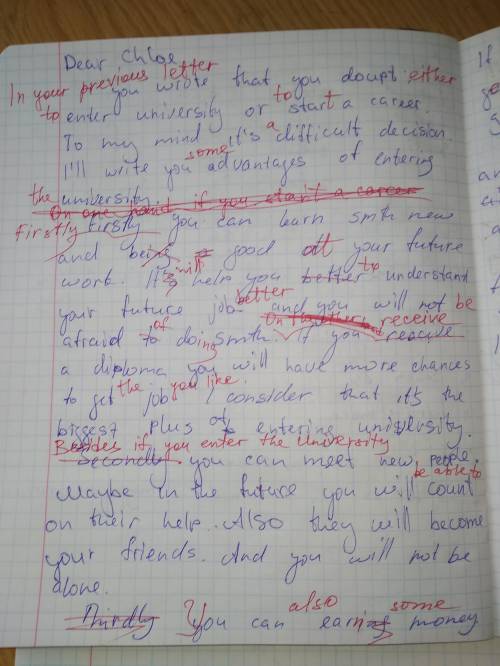 Dear Chloe,
In your previous letter
you wrote that you doubt either
to enter university or to start a career.
To my mind it's a difficult decision.
some
I'll write you advantages of entering
the university.
On one hand if you start a career
Firstly Firstly you can learn smth new
and being good at your future
work. It's will help you better to understand
your future job better and you will not be
On the other receive
afraid of doing smth. If you receive
a diploma you will have more chances
to get the job you like. I consider that it's the
biggest plus of entering university.
Besides if you enter the University
Secondly you can meet new people.
be able to
Maybe in the future you will count
on their help. Also they will become
your friends. And you will not be
alone.
also some
Thirdly You can earn money
If